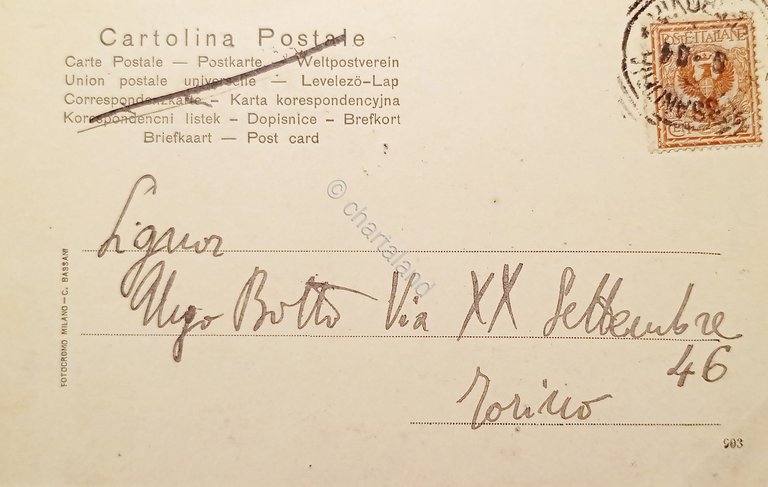 Cartolina Postale
Carte Postale — Postkarte — Weltpostverein
Union postale universelle — Levelezö-Lap
Correspondenzkarte - Karta korespondencyjna
Korespondencni listek - Dopisnice - Brefkort
Briefkaart — Post card
POSTE ITALIANE
2
04
© chartaland
Signor
Ugo Botto Via XX Settembre
46
Torino
FOTOCROMO MILANO — C. BASSANI
903